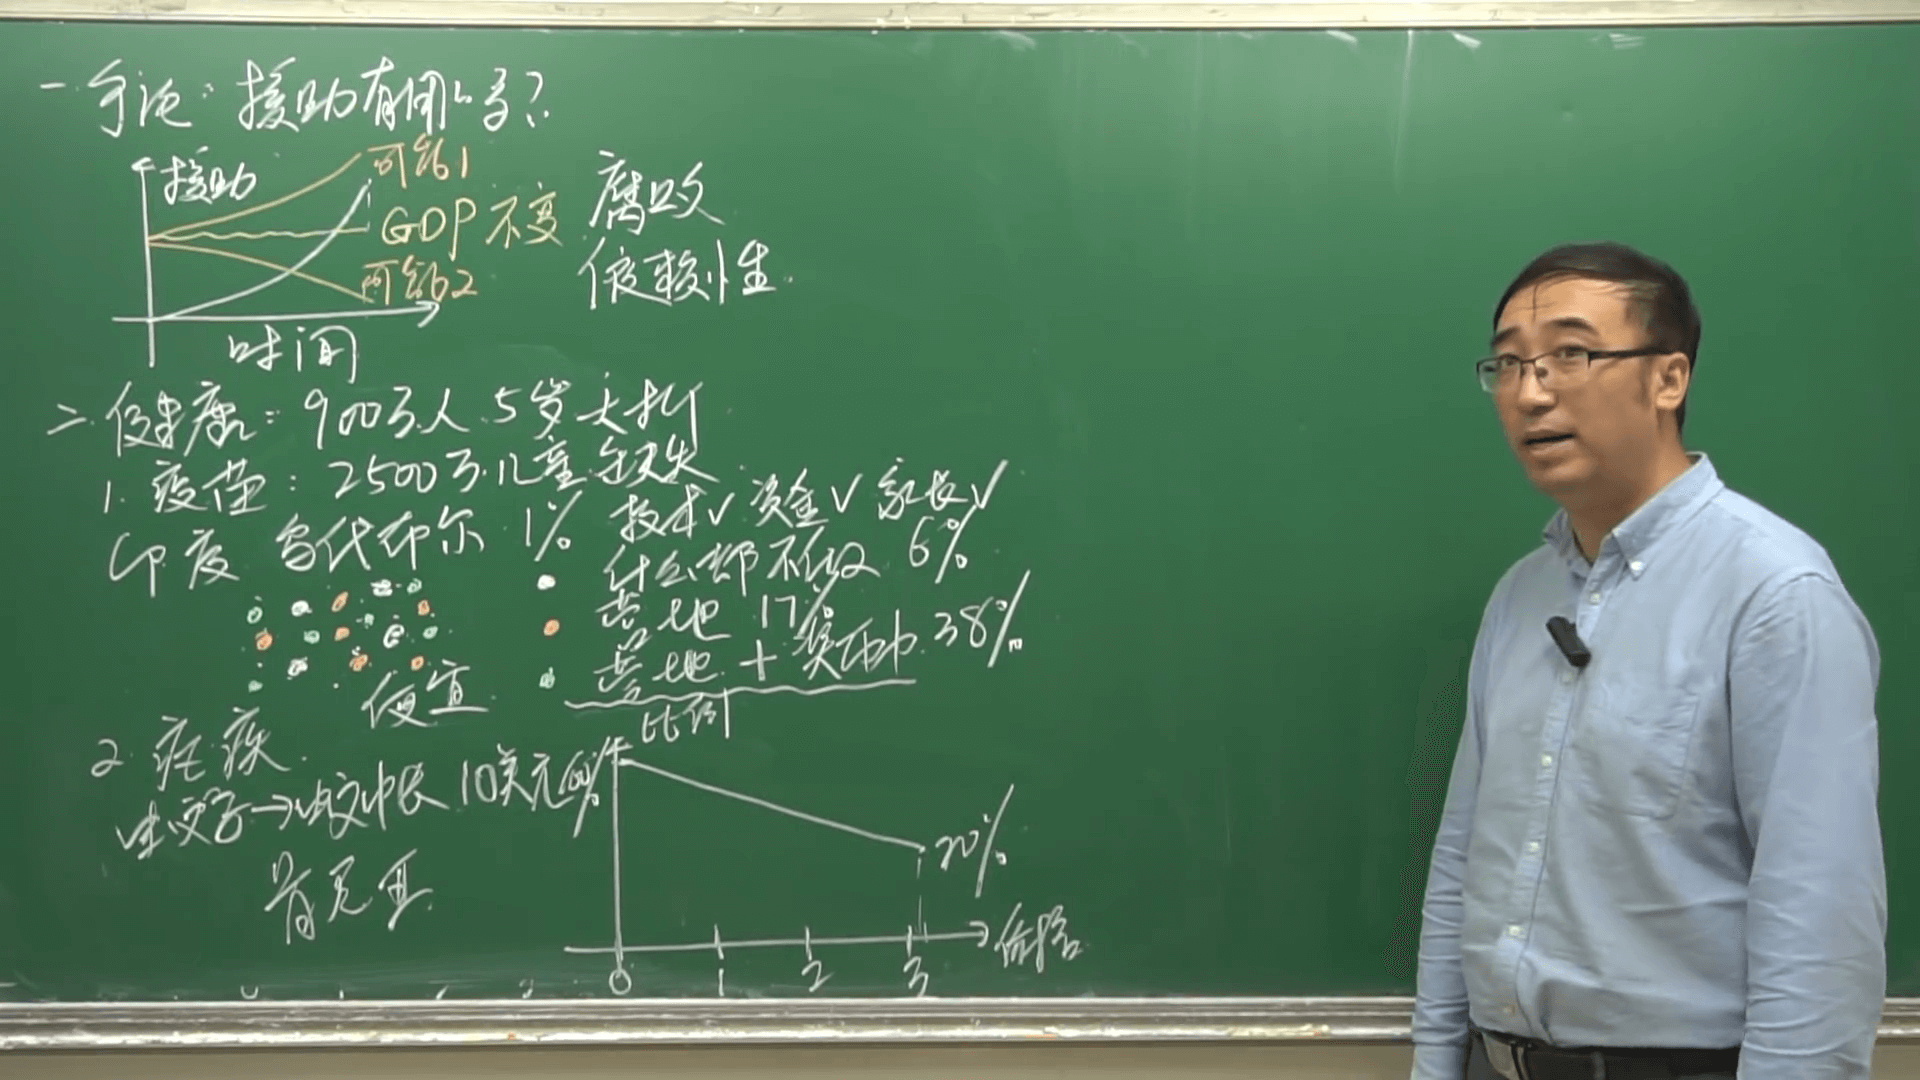 一.争论：援助有用吗？
援助
可能1
GDP不变
可能2
时间
腐败
依赖性
二.健康：900万人 5岁夭折
1.疫苗：2500万儿童缺失
印度 乌代布尔 1%
技术✓ 资金✓ 家长✓
什么都不做 6%
营地 17%
营地+奖励 38%
便宜
2.疟疾
蚊子→蚊帐 10美元
肯尼亚
比例
20%
0 1 2 3
价格